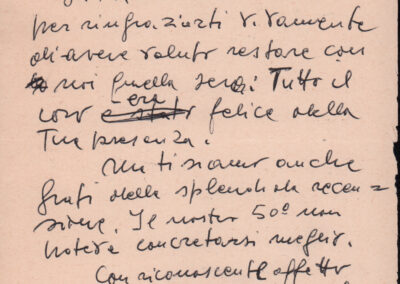 per ringraziarti vivamente
di avere voluto restare con
noi quella sera: Tutto il
coro era felice della
Tua presenza.
Noi ti siamo anche
grati della splendida recen=
sione. Il nostro 50º non
poteva concretarsi meglio.
Con riconoscente affetto